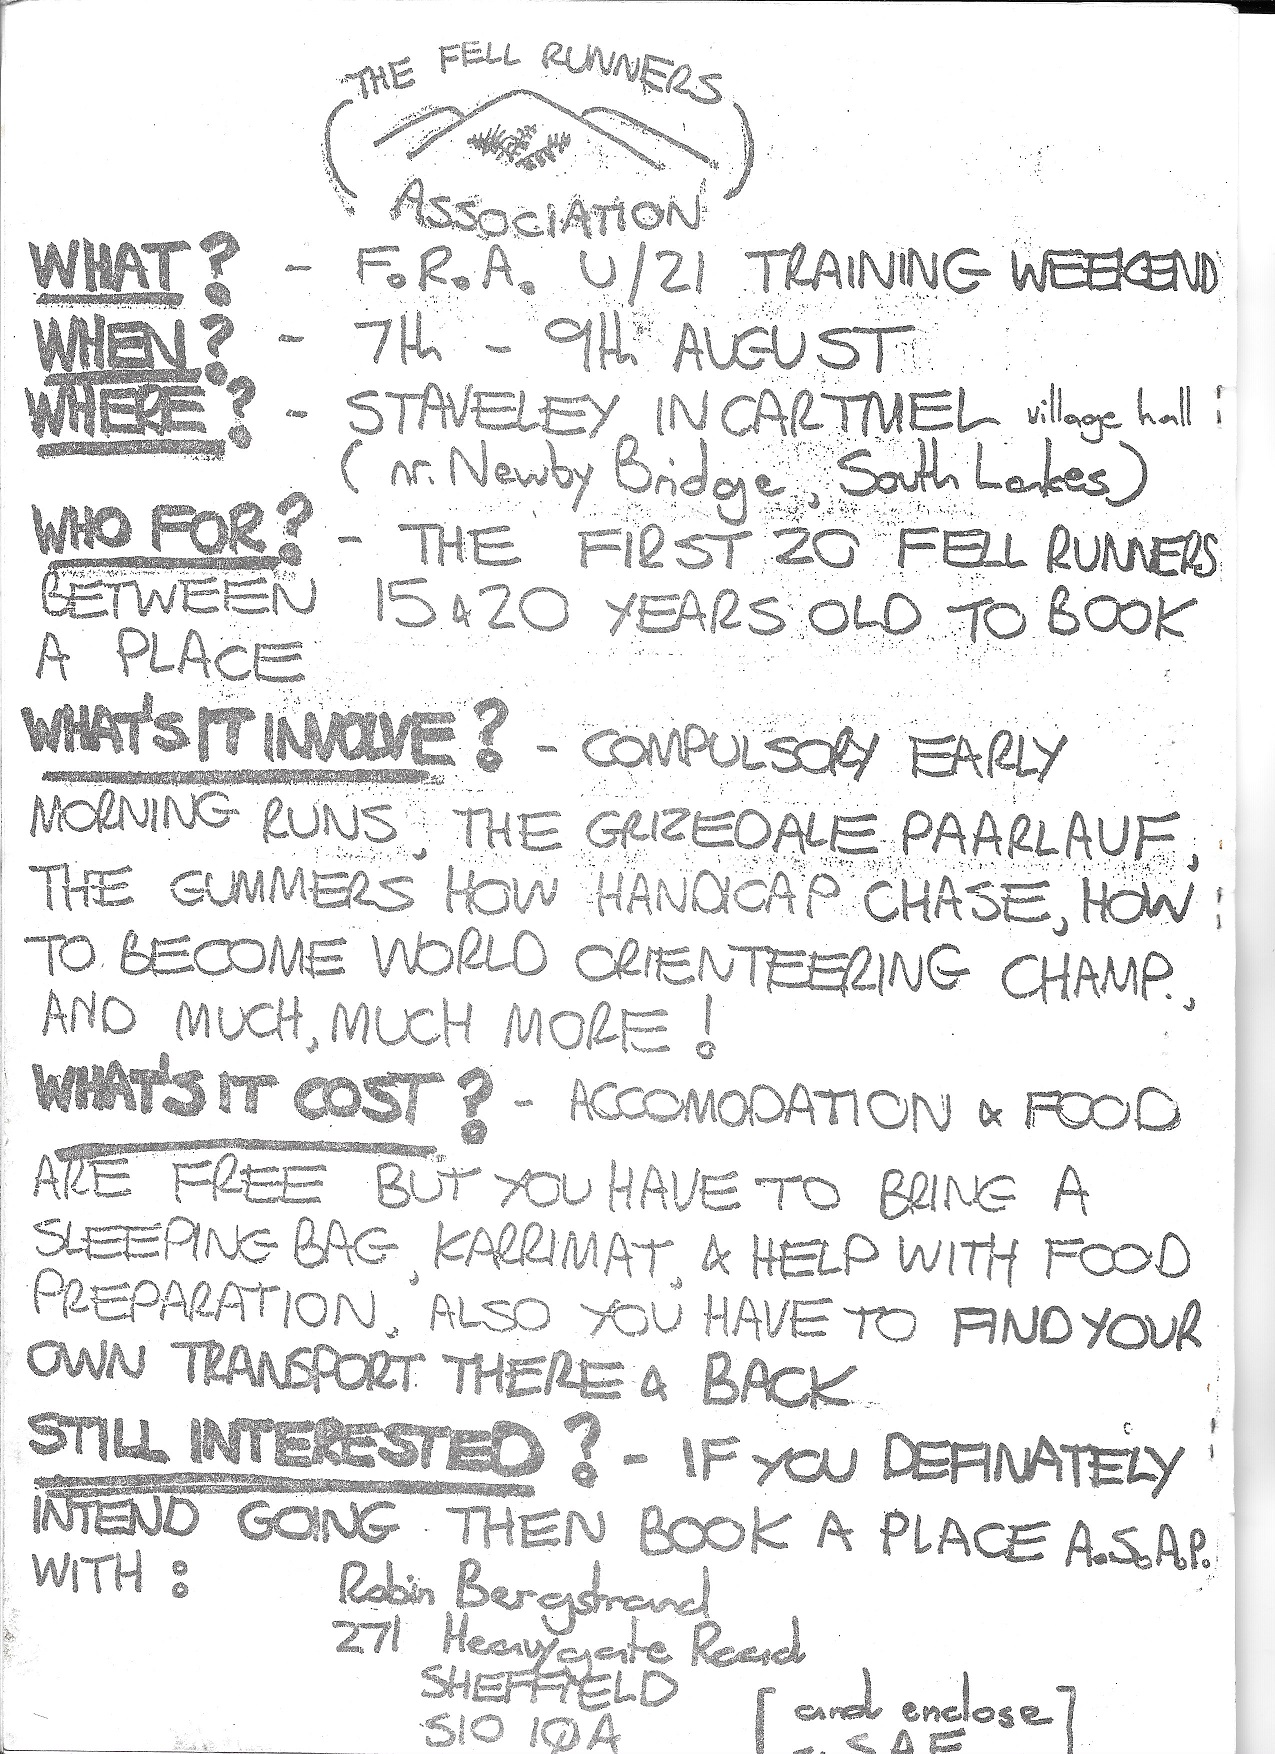 THE FELL RUNNERS
ASSOCIATION
WHAT? - F.R.A. U/21 TRAINING WEEKEND
WHEN? - 7th - 9th AUGUST
WHERE? - STAVELEY IN CARTMEL village hall
(nr. Newby Bridge, South Lakes)
WHO FOR? - THE FIRST 20 FELL RUNNERS
BETWEEN 15 & 20 YEARS OLD TO BOOK
A PLACE
WHAT'S IT INVOLVE? - COMPULSORY EARLY
MORNING RUNS, THE GRIZEDALE PAARLAUF,
THE GUMMERS HOW HANDICAP CHASE, HOW
TO BECOME WORLD ORIENTEERING CHAMP.,
AND MUCH, MUCH MORE!
WHAT'S IT COST? - ACCOMODATION & FOOD
ARE FREE BUT YOU HAVE TO BRING A
SLEEPING BAG, KARRIMAT, & HELP WITH FOOD
PREPARATION, ALSO YOU HAVE TO FIND YOUR
OWN TRANSPORT THERE & BACK
STILL INTERESTED? - IF YOU DEFINATELY
INTEND GOING THEN BOOK A PLACE A.S.A.P.
WITH:
Robin Bergstrand
271 Heavygate Road
SHEFFIELD
S10 1QA
[and enclose]
S.A.E